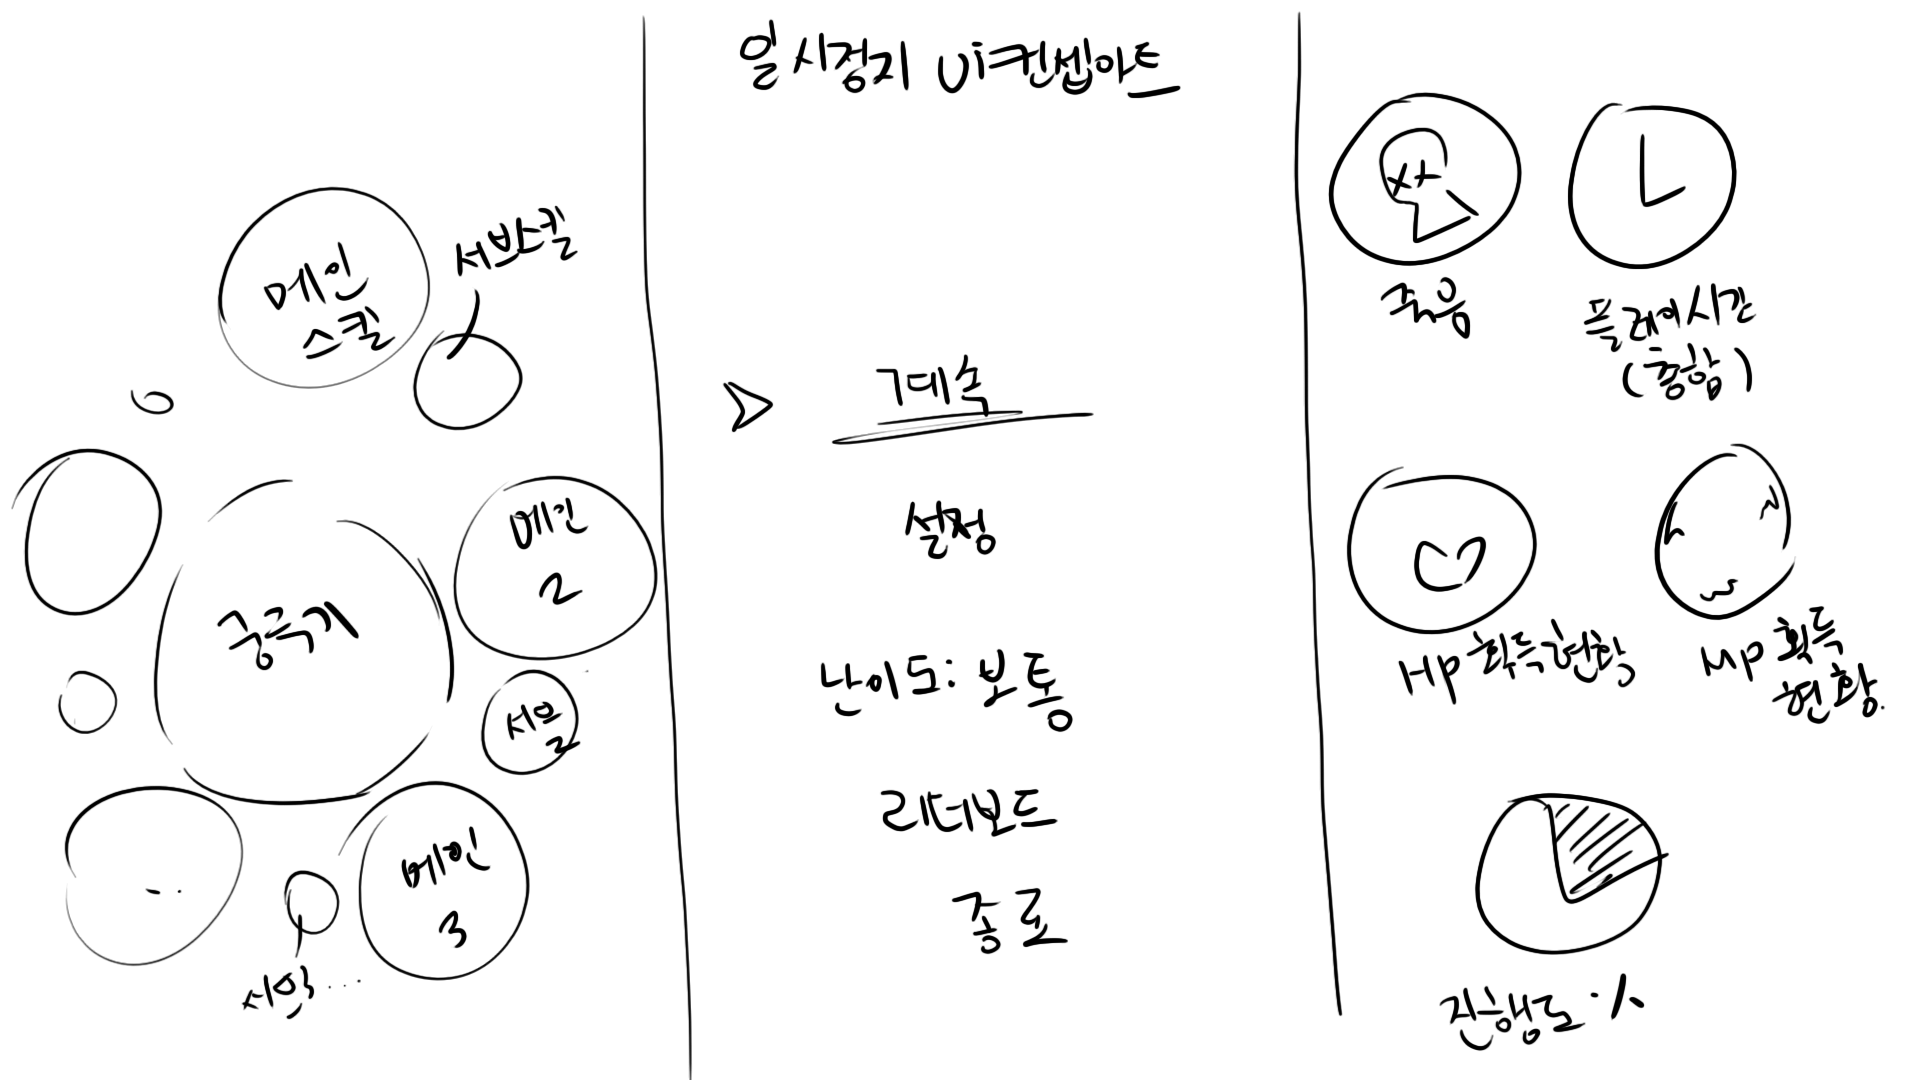 일시정지 Ui컨셉아트
메인
스킬
서브스킬
궁극기
메인
2
서브
2
메인
3
계속
설정
난이도: 보통
리더보드
종료
죽음
플레이시간
(총합)
HP 획득현황
MP 획득
현황.
진행도 %